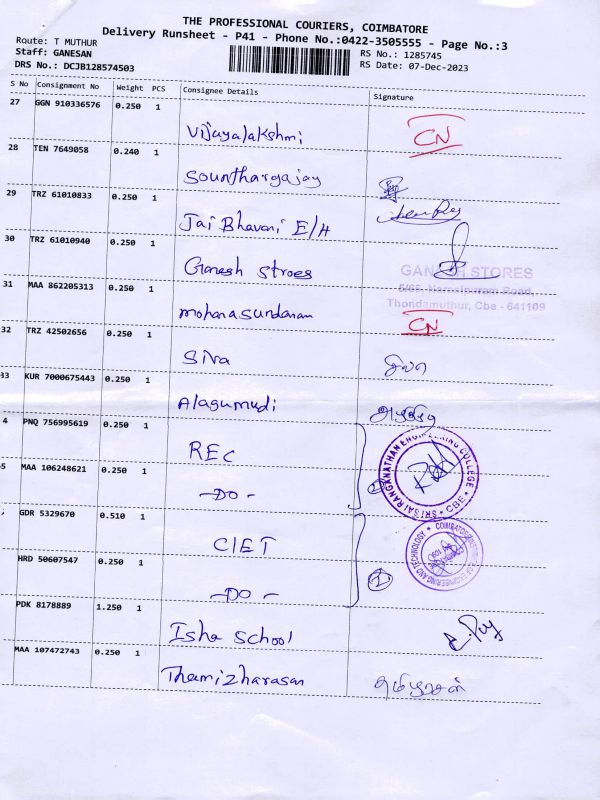 THE PROFESSIONAL COURIERS, COIMBATORE
Delivery Runsheet - P41 - Phone No.:0422-3505555 - Page No.:3
Route: T MUTHUR
Staff: GANESAN
DRS No.: DCJB128574503
RS No.: 1285745
RS Date: 07-Dec-2023
S No Consignment No Weight PCS Consignee Details Signature
27 GGN 910336576 0.250 1 Vijayalakshmi CN
28 TEN 7649058 0.240 1 Sountharyajay
29 TRZ 61010833 0.250 1 Jai Bhavani E/H
30 TRZ 61010940 0.250 1 Ganesh Stroes
GANESH STORES
5/66, Narasipuram Road,
Thondamuthur, Cbe - 641109
31 MAA 862205313 0.250 1 mohanasundaram CN
32 TRZ 42502656 0.250 1 Siva சிவா
33 KUR 7000675443 0.250 1 Alagumudi
4 PNQ 756995619 0.250 1 REC
SRI SAI RANGANATHAN ENGINEERING COLLEGE * CBE *
35 MAA 106248621 0.250 1 -DO-
GDR 5329670 0.510 1 CIET
COIMBATORE INSTITUTE OF ENGINEERING AND TECHNOLOGY
HRD 50607547 0.250 1 -DO-
PDK 8178889 1.250 1 Isha School
MAA 107472743 0.250 1 Thamizharasan தமிழரசன்